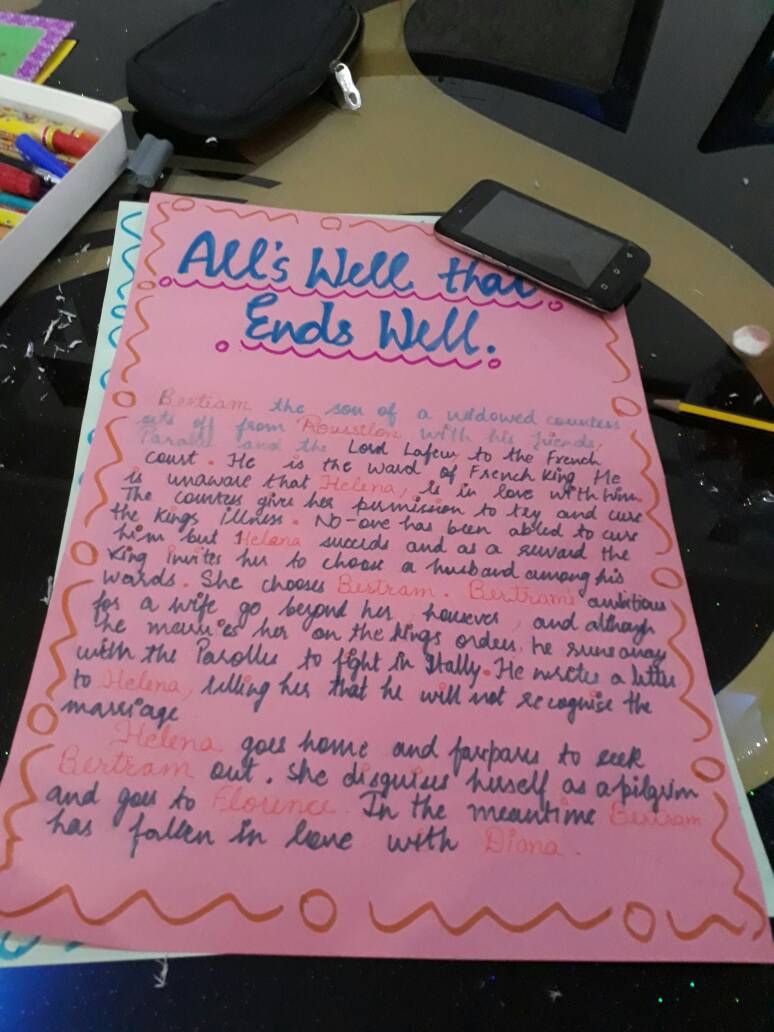 All's Well that
Ends Well.
Bertram the son of a widowed countess
sets off from Roussilon with his friends,
Parolls and the Lord Lafew to the French
court. He is the ward of French King He
is unaware that Helena, is in love with him.
The countess give her permission to try and cure
the Kings illness. No-one has been abled to cure
him but Helena succeds and as a reward the
King invites her to choose a husband among his
wards. She chooses Bertram. Bertram's ambitious
for a wife go beyond her, however, and although
he marries her on the kings orders, he runs away
with the Parolles to fight in Itally. He writes a letter
to Helena, telling her that he will not recognise the
marriage
Helena goes home and to seek
Bertram out. She disguises herself as a pilgrim
and goes to Florence. In the meantime Bertram
has fallen in love with Diana.